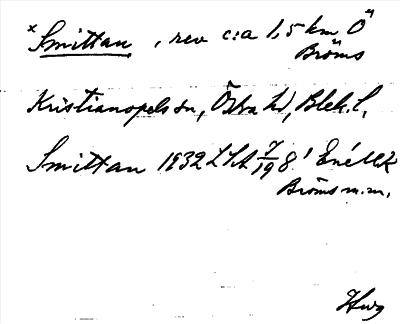 x Smittan, rev c:a 1,5 km Ö
Bröms
Kristianopels sn, Östra hd, Blek. l.
Smittan 1932 LSA 7/198!
Bröms m.m.
Hwg